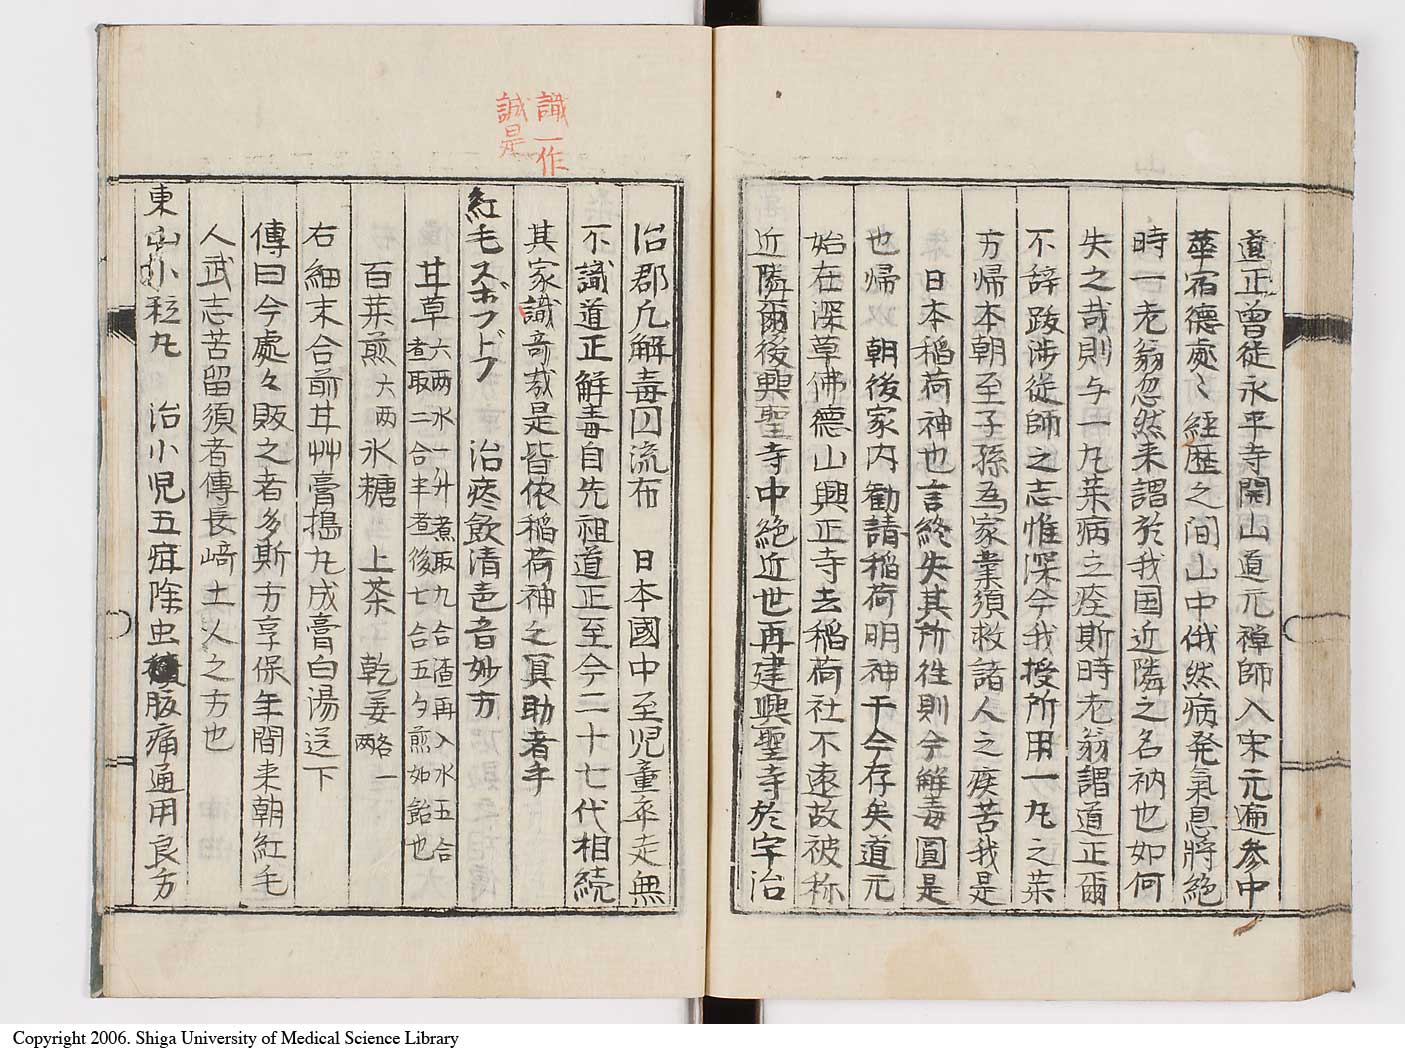 道正曾従永平寺開山道元禅師入宋元遍参中
華宿德處〻経歴之间山中俄然病発氣息将絶
時一老翁忽然来謂於我国近隣之名衲也如何
失之哉則与一丸薬病之痊斯時老翁謂道正爾
不辞跋渉従師之志惟深今我授所用一丸之薬
方帰本朝至子孫為家業須救諸人之疾苦我是
日本稲荷神也言終失其所往則今解毒圓是
也帰 朝後家内勧請稲荷明神于今存矣道元
始在深草佛德山興正寺去稲荷社不遠故被称
近隣爾後興聖寺中絶近世再建興聖寺於宇治
治郡凢解毒囙流布 日本國中至児童卒走無
不識道正解毒自先祖道正至今二十七代相続
其家識奇哉是皆依稲荷神之冥助者乎
識一作
誠是
紅毛スボフドフ 治痰飲清音声妙方
甘草六两水一升煮取九合渣再入水五合
煮取二合半煮後七合五夕煎如飴也
百薬煎六两 氷糖 上茶 乾姜各一两
右細末合前甘艸膏搗丸成膏白湯送下
傳曰今處々販之者多斯方享保年間来朝紅毛
人武志苦留須者傳長﨑土人之方也
東山小粒丸 治小児五疳除虫積腹痛通用良方
Copyright 2006. Shiga University of Medical Science Library